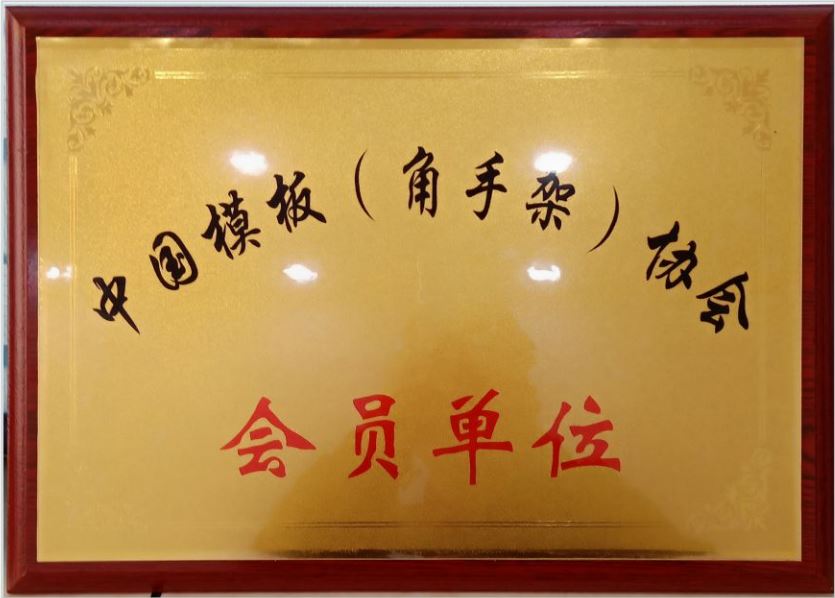 中国模板（角手架）协会
会员单位